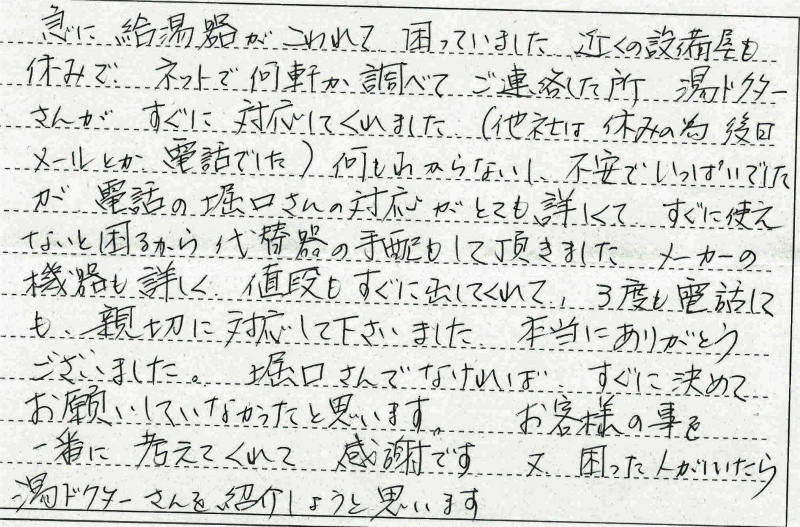 急に 給湯器が こわれて 困っていました 近くの設備屋も
休みで ネットで何軒か調べて ご連絡した所 湯ドクター
さんが すぐに 対応してくれました (他社は 休みの為 後日
メールとか 電話でした) 何もわからないし、不安でいっぱいでした
が 電話の堀口さんの対応がとても詳しくて すぐに使え
ないと困るから 代替器の手配もして頂きました メーカーの
機器も詳しく 値段もすぐに出してくれて、3度も電話して
も、親切に対応して下さいました 本当にありがとう
ございました。 堀口さんでなければ すぐに決めて
お願いしていなかったと思います。 お客様の事を
一番に 考えてくれて 感謝です 又 困った人がいたら
湯ドクターさんを紹介しようと思います